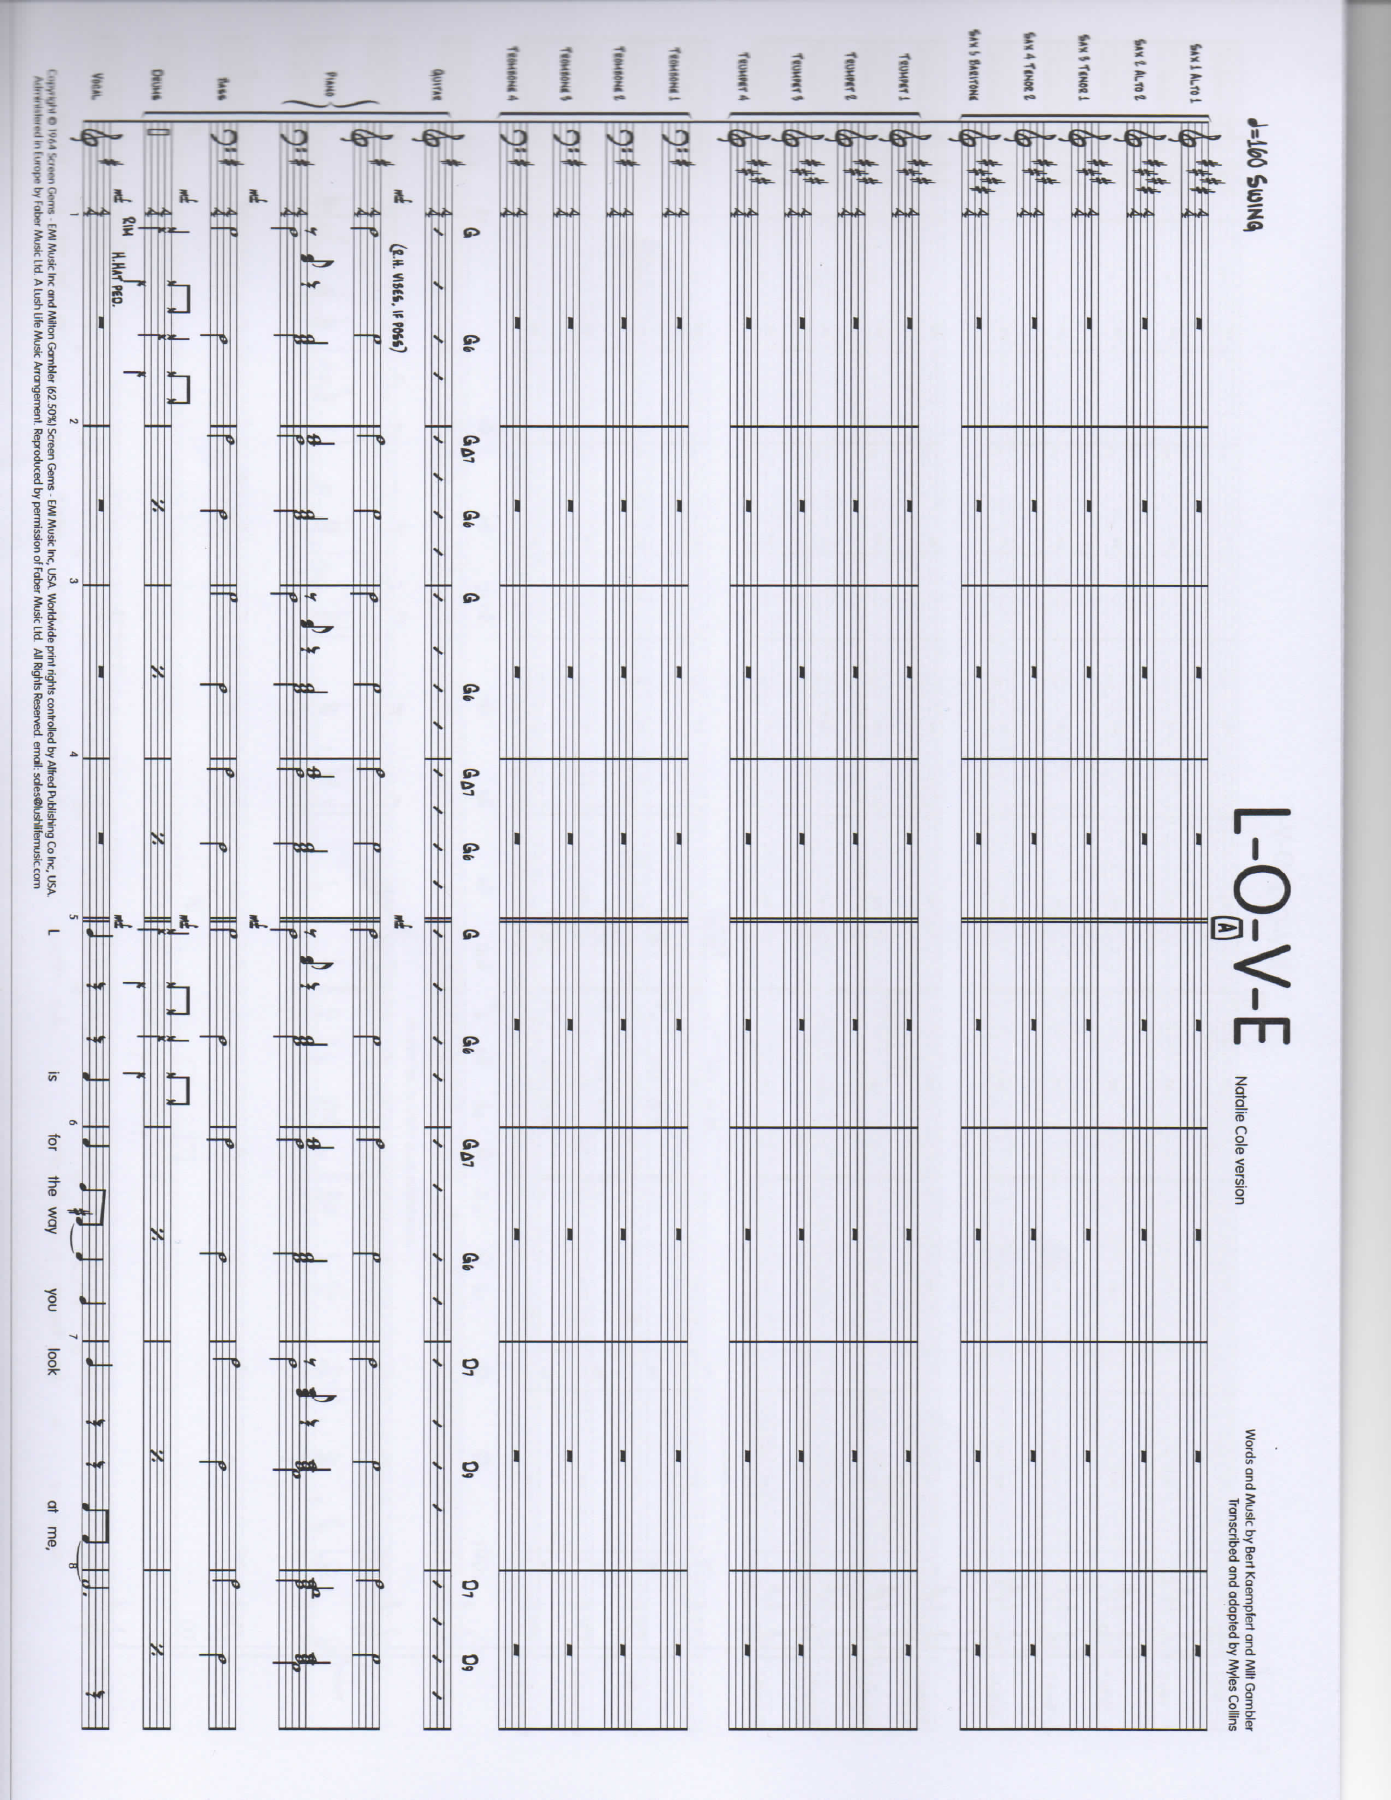 L-O-V-E
Natalie Cole version
Words and Music by Bert Kaempfert and Milt Gambler
Transcribed and adapted by Myles Collins
♩=160 SWING
A
SAX 1 ALTO 1
SAX 2 ALTO 2
SAX 3 TENOR 1
SAX 4 TENOR 2
SAX 5 BARITONE
TRUMPET 1
TRUMPET 2
TRUMPET 3
TRUMPET 4
TROMBONE 1
TROMBONE 2
TROMBONE 3
TROMBONE 4
G G6 G△7 G6 G G6 G△7 G6 G G6 G△7 G6 D7 D9 D7 D9
GUITAR
mf (R.H. VIBES, IF POSS) mf
PIANO
mf mf
BASS
mf mf
DRUMS
RIM H.HAT PED.
mf mf
VOCAL
1 2 3 4 5 6 7 8
L is for the way you look at me,
Copyright © 1964 Screen Gems - EMI Music Inc and Milton Gambler (62.50%) Screen Gems - EMI Music Inc, USA. Worldwide print rights controlled by Alfred Publishing Co Inc, USA.
Administered in Europe by Faber Music Ltd. A Lush Life Music Arrangement. Reproduced by permission of Faber Music Ltd. All Rights Reserved. email: sales@lushlifemusic.com